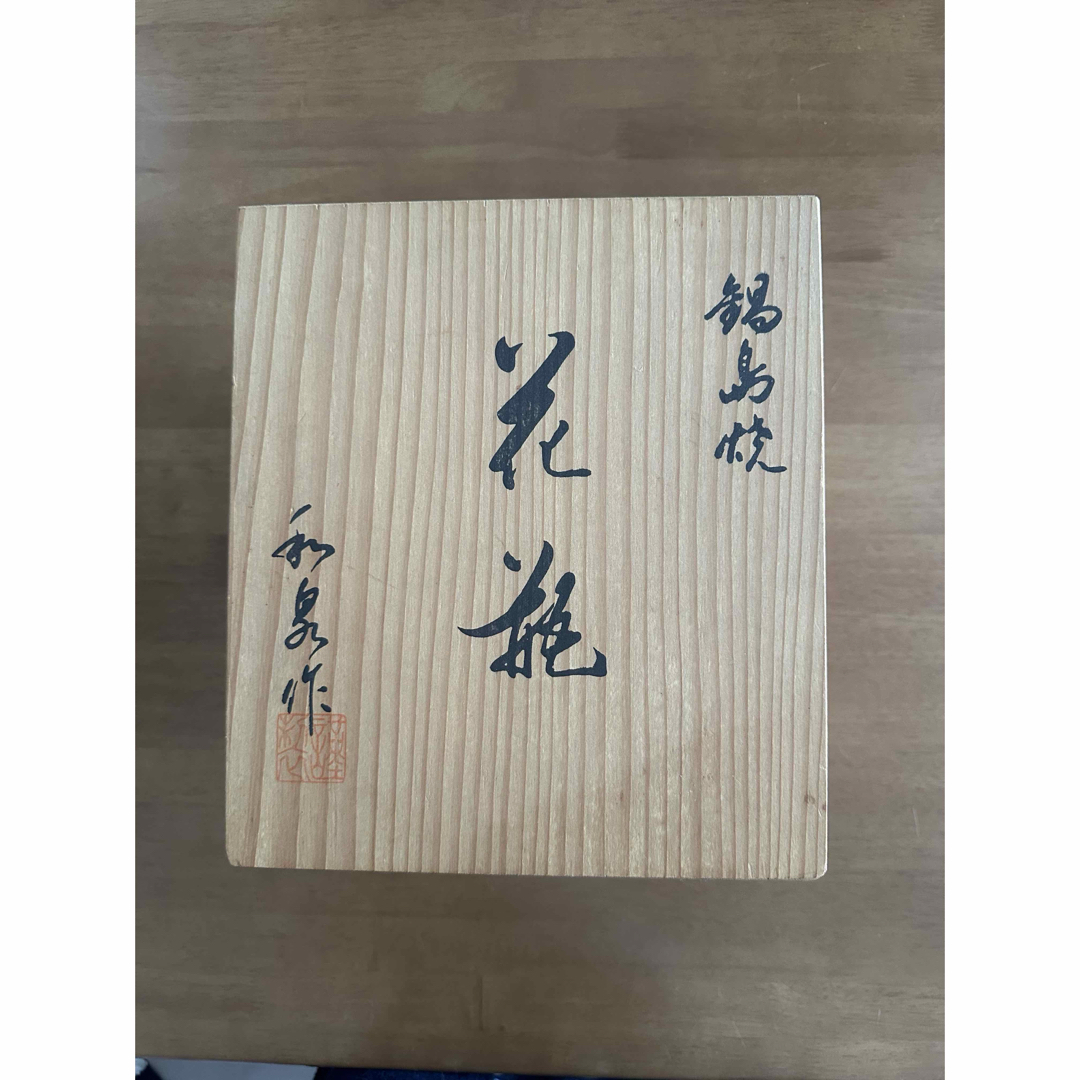 鍋島焼
花瓶
和泉作